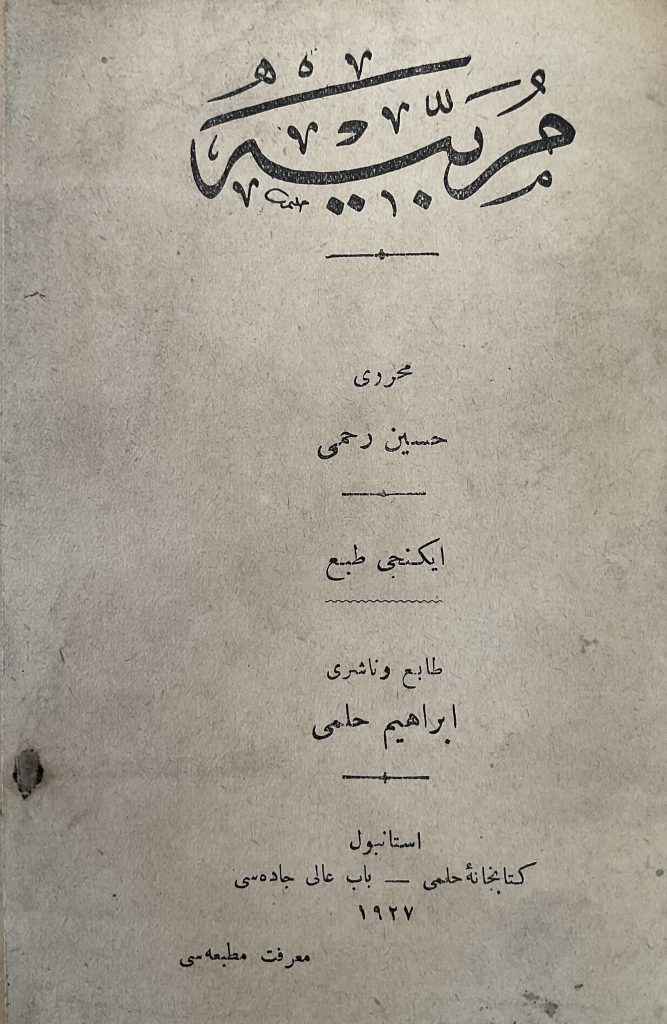 مُرَبِّيَه
محرری
حسين رحمی
ايكنجی طبع
طابع وناشری
ابراهيم حلمی
استانبول
كتابخانۀ حلمی — باب عالی جاده‌سی
۱۹۲۷
معرفت مطبعه‌سی